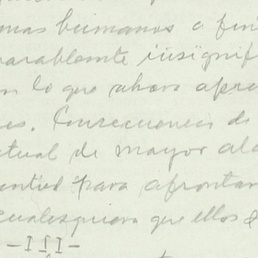 mas humanos a fin
parablemente insignif
n lo que ahora apre
es. Consecuencia de
ctual de mayor al
entud para afrontar
cualesquiera que ellos
-III-